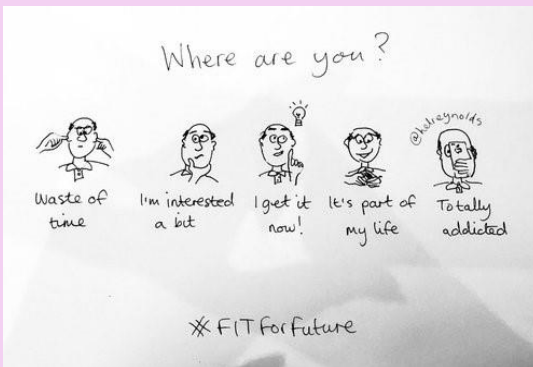 Where are you?
@helreynolds
Waste of
time
I'm interested
a bit
I get it
now!
It's part of
my life
Totally
addicted
#FITforfuture